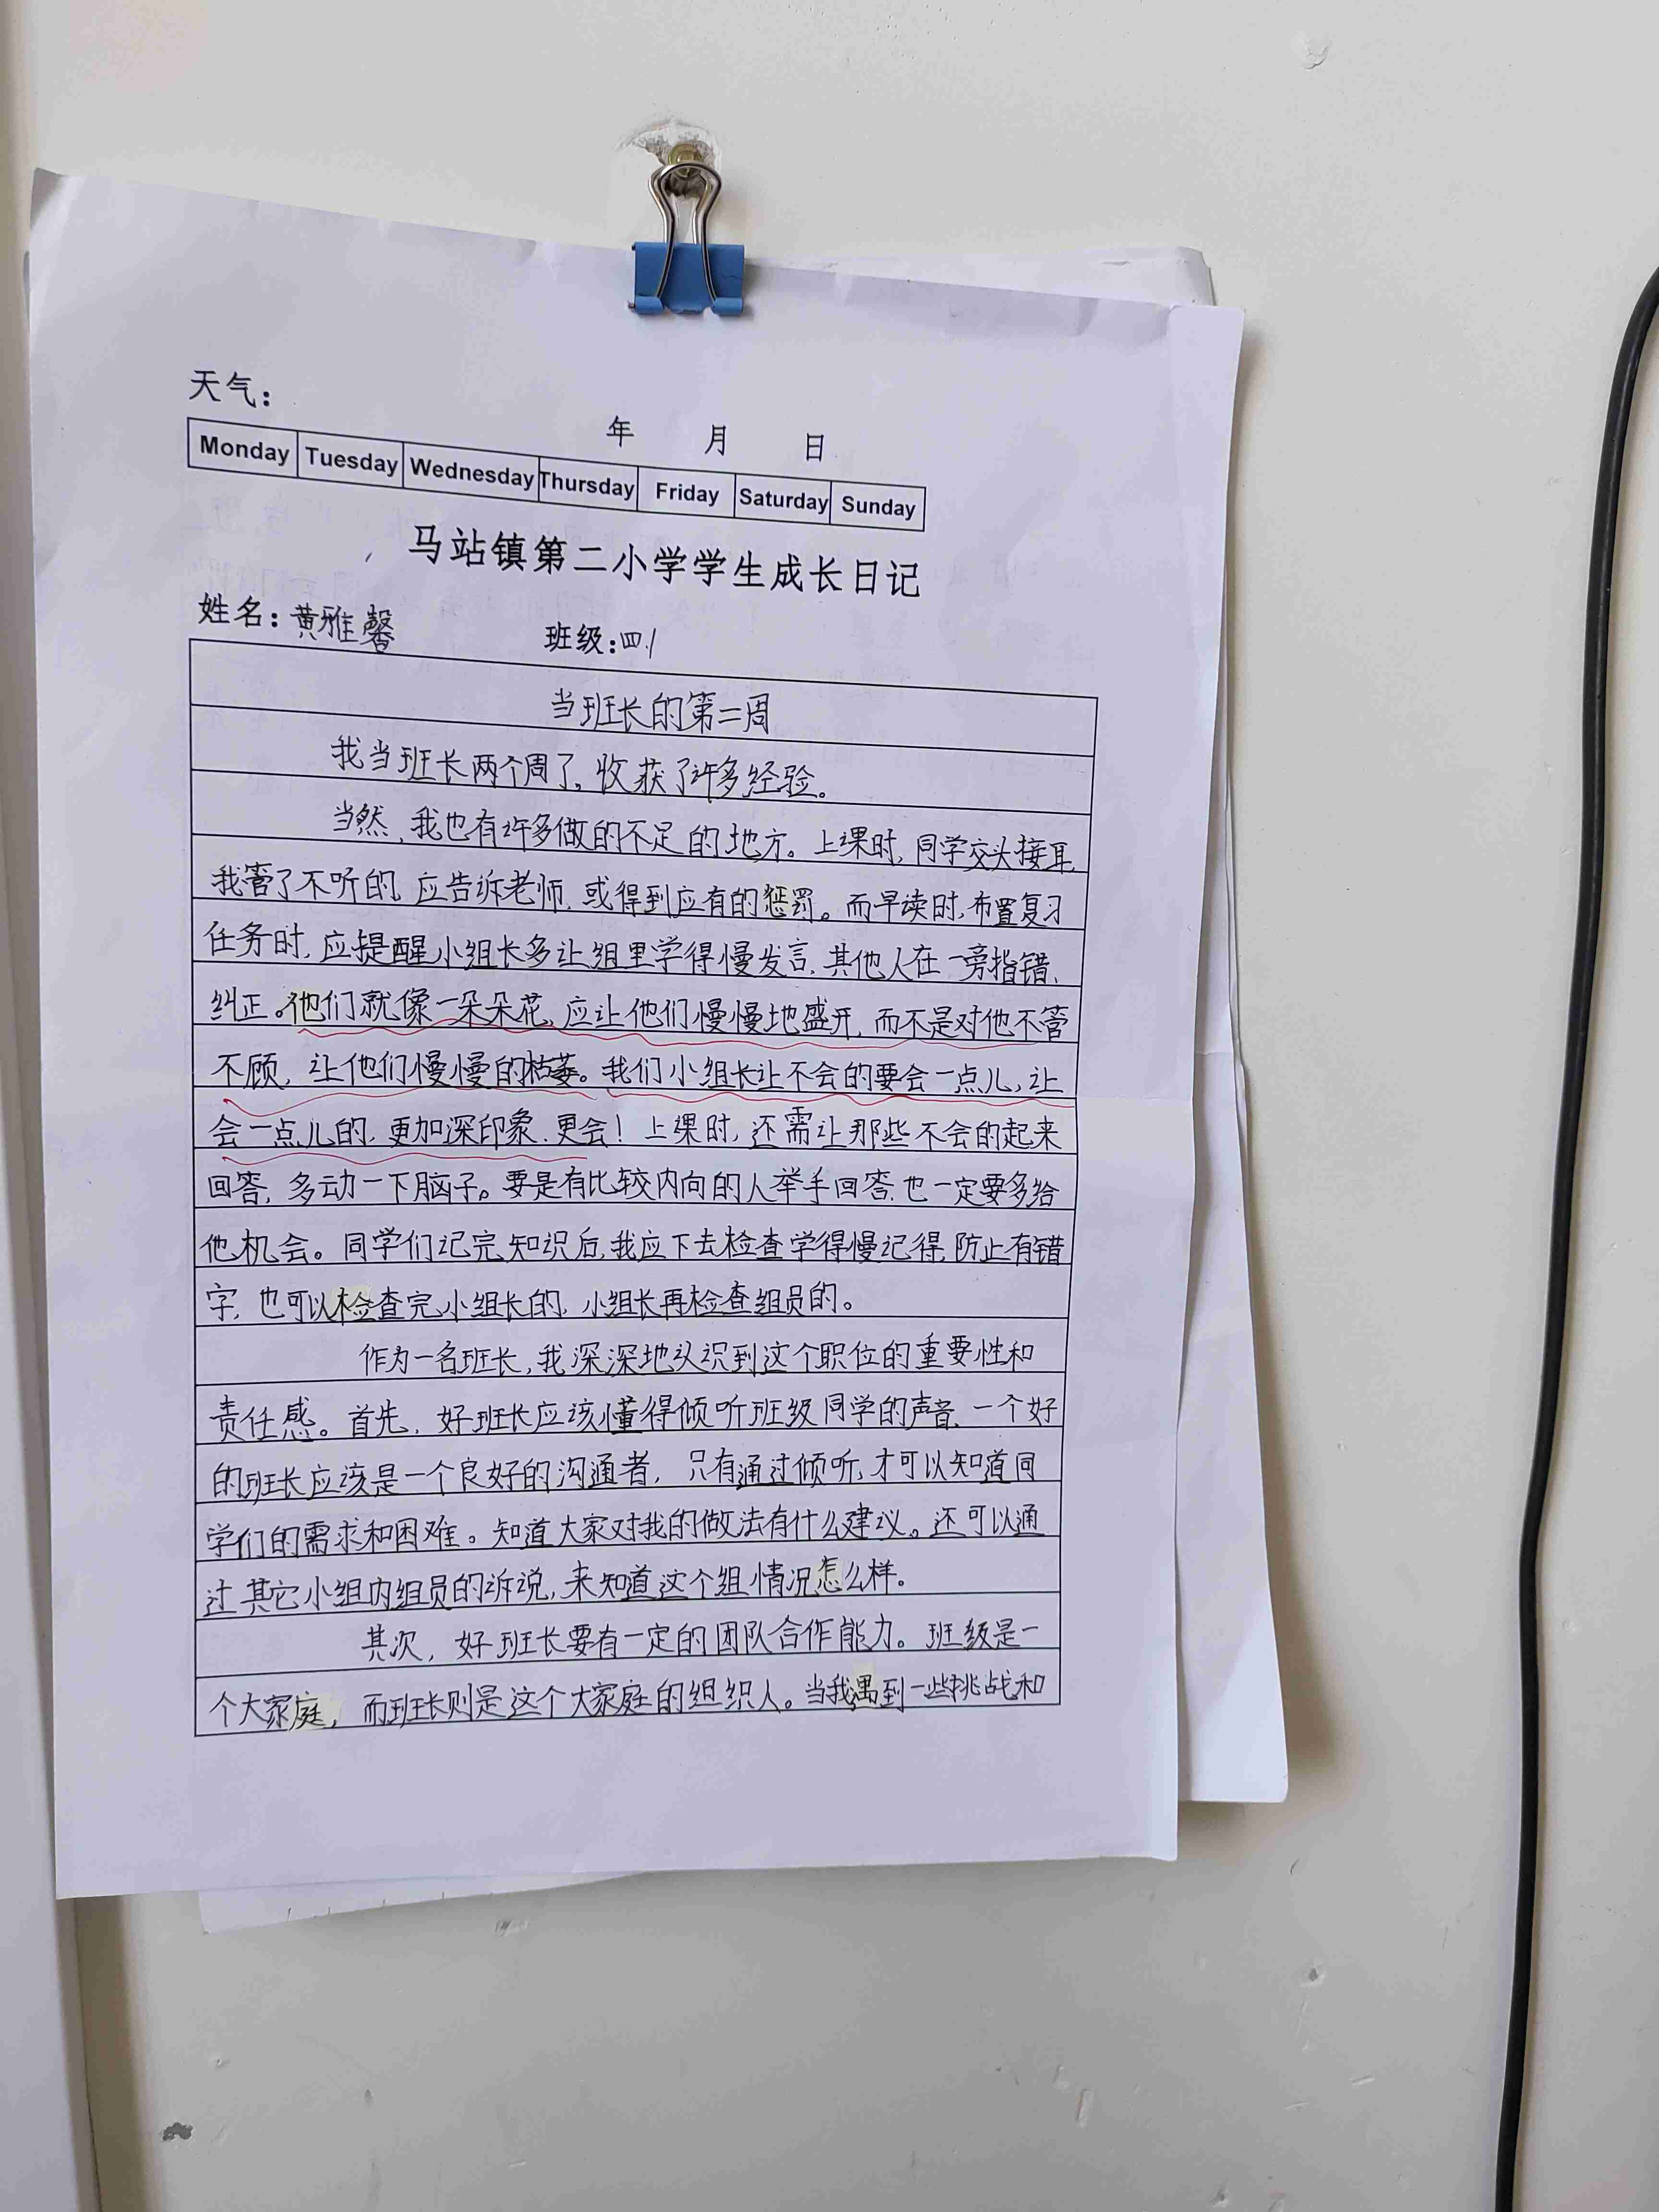 天气：
年 月 日
Monday Tuesday Wednesday Thursday Friday Saturday Sunday
马站镇第二小学学生成长日记
姓名：黄雅馨 班级：四.1
当班长的第二周
我当班长两个周了，收获了许多经验。
当然，我也有许多做的不足的地方。上课时，同学交头接耳，
我管了不听的，应告诉老师，或得到应有的惩罚。而早读时，布置复习
任务时，应提醒小组长多让组里学得慢发言，其他人在一旁指错、
纠正。他们就像一朵朵花，应让他们慢慢地盛开，而不是对他不管
不顾，让他们慢慢的枯萎。我们小组长让不会的要会一点儿，让
会一点儿的，更加深印象、更会！上课时，还需让那些不会的起来
回答，多动一下脑子。要是有比较内向的人举手回答，也一定要多给
他机会。同学们记完知识后，我应下去检查学得慢记得，防止有错
字，也可以检查完小组长的，小组长再检查组员的。
作为一名班长，我深深地认识到这个职位的重要性和
责任感。首先，好班长应该懂得倾听班级同学的声音、一个好
的班长应该是一个良好的沟通者，只有通过倾听，才可以知道同
学们的需求和困难。知道大家对我的做法有什么建议。还可以通
过其它小组内组员的诉说，来知道这个组情况怎么样。
其次，好班长要有一定的团队合作能力。班级是一
个大家庭，而班长则是这个大家庭的组织人。当我遇到一些挑战和